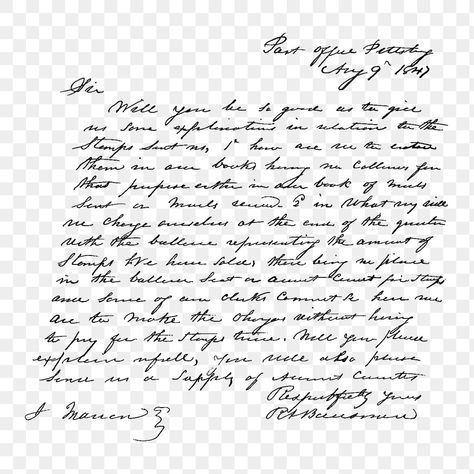 Post Office Pittsburg
Aug 9th 1847
Sir
Will you be so good as to give
us some explanations in relation to the
Stamps Sent us, 1st how are we to enter
them in our books having no Collumn for
that purpose either in our book of mails
Sent or Mails received 2d in What way will
we charge ourselves at the end of the quarter
with the ballance representing the amount of
Stamps We have sold, there being no place
in the ballance Sheet or account Current for Stamps
and some of our clerks cannot see how we
are to make the charges without having
to pay for the Stamps twice. Will you please
explain in full, you will also please
send us a supply of Account Currents
Respectfully yours
J Marron